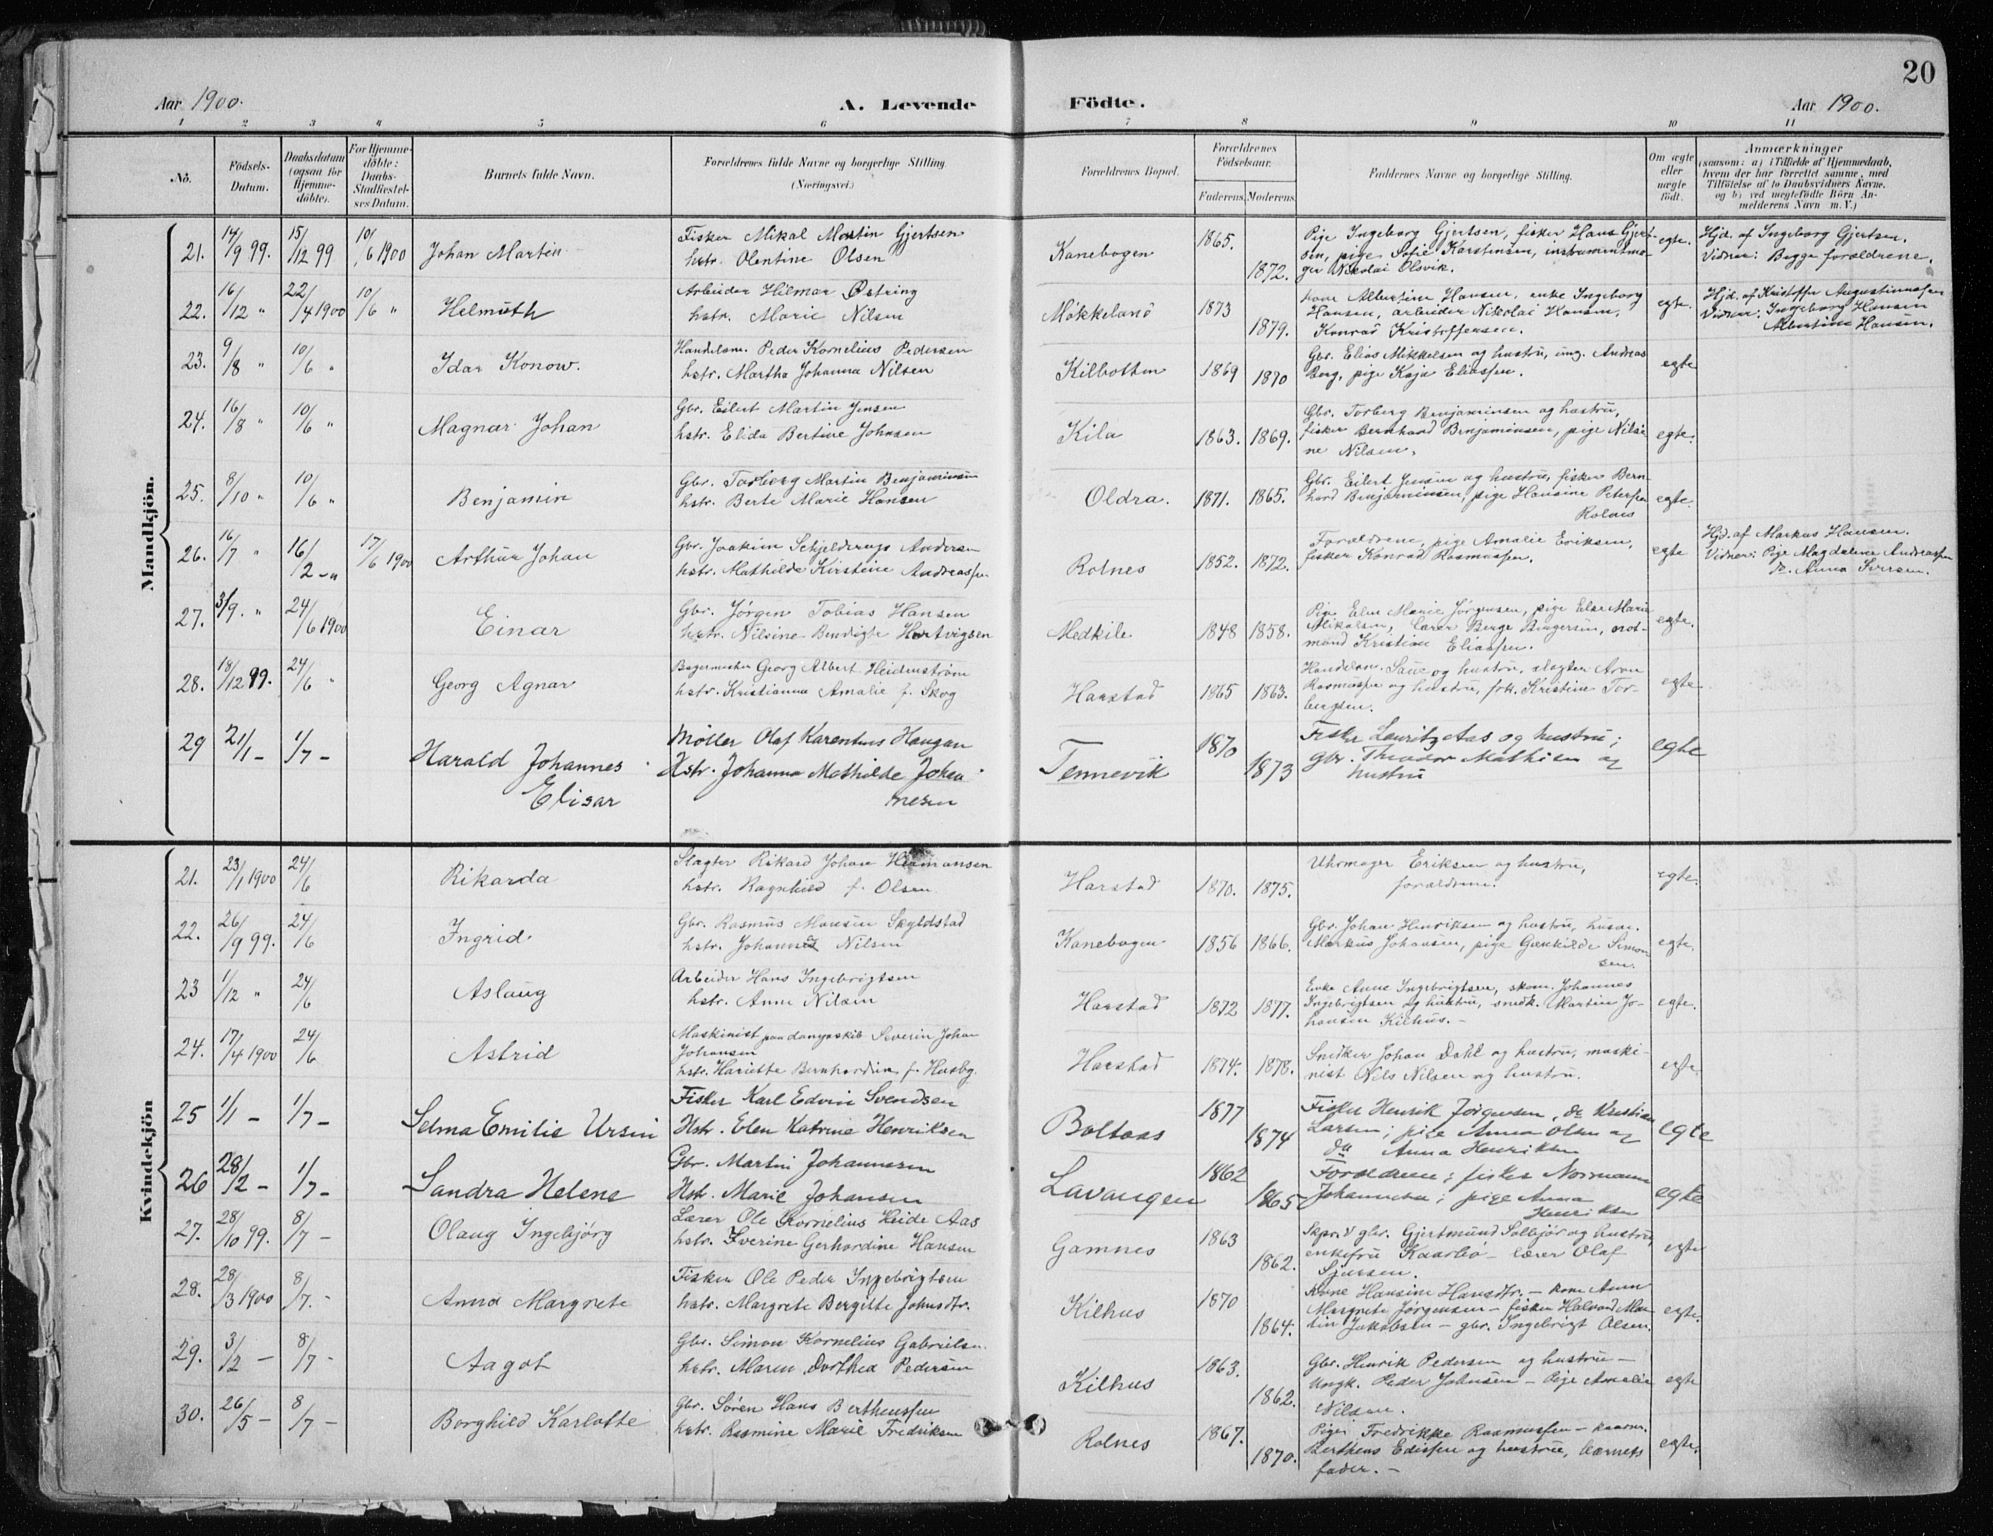 20
Aar 1900.
A. Levende
Födte.
Aar 1900.
1 2 3 4 5 6 7 8 9 10 11
No.
Födsels-Datum.
Daabsdatum (ogsaa for Hjemme-döbte).
For Hjemme-döbte: Daabs-Stadfæstel-ses Datum.
Barnets fulde Navn.
Forældrenes fulde Navne og borgerlige Stilling. (Næringsvei)
Forældrenes Bopæl.
Forældrenes Födselsaar.
Faderens. Moderens.
Faddernes Navne og borgerlige Stilling.
Om ægte eller uægte födt.
Anmærkninger
(saasom: a) i Tilfælde af Hjemmedaab,
hvem der har forrettet samme, med
Tilföielse af to Daabsvidners Navne.
og b) ved uægtefödte Börn An-
melderens Navn m. V.)
Mandkjön.
21. 14/9 99. 15/12 99 10/6 1900 Johan Martin
Fisker Mikal Martin Gjertsen
hstr. Olentine Olsen
Kanebogen 1865. 1872.
Pige Ingeborg Gjertsen, fisker Hans Gjert-
sen, pige Sofie Karstensen, instrumentma-
ger Nikolai Olsvik.
egte.
Hjd. af Ingeborg Gjertsen.
Vidner: Begge forældrene.
22. 16/12 " 22/4 1900 10/6 " Helmuth
Arbeider Hilmar Østring
hstr. Marie Nilsen
Mökkeland 1873 1879.
Kone Albertine Hansen, enke Ingeborg
Hansen, arbeider Nikolai Hansen,
Konrad Kristoffersen.
egte.
Hjd. af Kristoffer Augustinussen
Vidner: Ingeborg Hansen
Albertine Hansen.
23. 9/8 " 10/6 " Idar Konow.
Handelsm. Peder Kornelius Pedersen
hstr. Martha Johanna Nilsen
Kilbotten 1869 1870
Gbr. Elias Mikkelsen og hustru, ung. Andreas
Berg, pige Kaja Eliassen.
egte
24. 16/8 " 10/6 " Magnar Johan
Gbr. Eilert Martin Jensen
hstr. Elida Bertine Johnsen
Kila 1863. 1869.
Gbr. Torberg Benjaminsen og hustru,
fisker Bernhard Benjaminsen, pige Nilsi-
ne Nilsen.
egte.
25. 8/10 " 10/6 " Benjamin
Gbr. Torberg Martin Benjaminsen
hstr. Berte Marie Hansen
Oldra. 1871. 1865.
Gbr. Eilert Jensen og hustru, fisker Bern-
hard Benjaminsen, pige Hansine Petersen
Rolnes
egte.
26. 16/7 " 16/2 - " 17/6 1900 Arthur Johan
Gbr. Joakim Schjelderup Andersen
hstr. Mathilde Kirstine Andreassen
Rolnes 1852. 1872.
Forældrene, pige Amalie Eriksen,
fisker Konrad Rasmussen.
egte
Hjd. af Markus Hansen.
Vidner: Pige Magdalena Andreassen
do. Anna Iversen.
27. 3/9. " 24/6 1900 Einar
Gbr. Jørgen Tobias Hansen
hstr. Nilsine Bendigte Hartvigsen
Medkile 1848 1858.
Pige Elen Marie Jørgensen, pige Else Marie
Mikalsen, lærer Berge Bergersen, not-
mand Kristian Eliassen.
egte.
28. 18/12 99. 24/6 " Georg Agnar
Bagermester Georg Albert Heidenstrøm
hstr. Kristianna Amalie f. Skog
Harstad 1865 1863.
Handelsm. Saue og hustru, slagter Aron
Rasmussen og hustru, frk. Kristine Tor-
bergsen.
egte
29 21/1 - 1/7 - Harald Johannes
Elisar
Møller Olaf Karentius Haugan
Hstr. Johanna Mathilde Johan
nesen
Tennevik 1870 1873
Fisker Lauritz Aas og hustru;
gbr. Theodor Mathisen og
hustru
egte
Kvindekjön
21. 23/1 1900 24/6 Rikarda
Slagter Rikard Johan Hermansen
hstr. Ragnhild f. Olsen.
Harstad 1870. 1875.
Uhrmager Eriksen og hustru,
forældrene.
egte.
22. 26/9 99. 24/6 Ingrid.
Gbr. Rasmus Monsen Skyldstad
hstr. Johanna Nilsen
Kanebogen 1856 1866.
Gbr. Johan Henriksen og hustru, husm.
Markus Johansen, pige Gunhilde Simon
sen.
egte.
23 1/12 " 24/6 Aslaug
Arbeider Hans Ingebrigtsen
hstr. Anne Nilsen
Harstad 1872 1877.
Enke Anne Ingebrigtsen, skom. Johannes
Ingebrigtsen og hustru, snedk. Martin Jo-
hansen Kilhus.-
egte.
24. 17/4 1900 24/6 Astrid
Maskinist paa dampskib Severin Johan
Johansen
hstr. Hariette Bernhardine f. Husby.
Harstad 1874. 1878.
Snedker Johan Dahl og hustru, maski-
nist Nils Nilsen og hustru.
egte.
25 1/1 - 1/7 - Selma Emilie Ursin
Fisker Karl Edvin Svendsen
Hstr. Elen Katrine Henriksen
Boltaas 1877 1874
Fisker Henrik Jørgensen, do Kristian
Larsen; pige Anna Olsen og
do Anna Henriksen
egte
26 28/2 - 1/7 - Sandra Helene
Gbr. Martin Johannesen
Hstr. Marie Johansen
Lavangen 1862 1865
Forældrene; fisker Normann
Johannesen; pige Anna
Henriksen
egte
27. 28/10 99. 8/7 - Olaug Ingebjørg
Lærer Ole Kornelius Heide Aas
hstr. Iverine Gerhardine Hansen
Gamnes 1863 1862.
Skpr. & gbr. Gjertmund Solbjør og hustru,
enkefru Kaarbø - lærer Olaf
Sjursen.
egte
28. 28/3 1900 8/7. - Anna Margrete
Fisker Ole Peder Ingebrigtsen
hstr. Margrete Bergitte Johnsdtr.
Kilhus 1870 1864.
Kone Hansine Hansdtr. - kone Anna
Margrete Jørgensen - fisker Halvard Mar-
tin Jakobsen - gbr. Ingebrigt Olsen.
egte.
29. 3/2 - 8/7 - Aagot
Gbr. Simon Kornelius Gabrielsen
hstr. Maren Dorthea Pedersen
Kilhus 1863. 1862.
Gbr. Henrik Pedersen og hustru -
Ungk. Peder Johnsen - Pige Amalie
Nilsen.
egte
30. 26/5 - 8/7 - Borghild Karlotte
Gbr. Søren Hans Berthenssen
hstr. Rasmine Marie Fredriksen
Rolnes 1867. 1870.
Pige Fredrikke Rasmussen -
Berthens Edissen og hustru, barnets
fader. -
egte.